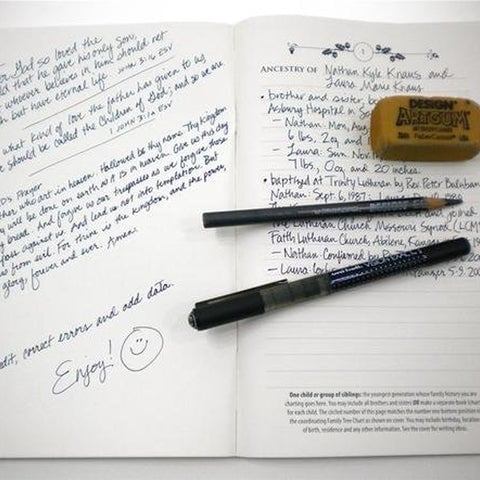 God so loved the
that he gave his only Son,
whoever believes in Him should not
but have eternal life. JOHN 3:16 ESV
what kind of love the father has given to us
we should be called the Children of God; and so we are
1 JOHN 3:1A ESV
Prayer
who art in heaven. Hallowed be thy name. Thy Kingdom
will be done on earth as it is in heaven. Give us this day
bread. And forgive us our trespasses as we forgive those
against us. And lead us not into temptation. But
us from evil. For thine is the kingdom, and the power,
glory, forever and ever. Amen.
edit, correct errors and add data.
Enjoy!
1
ANCESTRY OF Nathan Kyle Knaus and
Laura Marie Knaus
• brother and sister, b
Asbury Hospital in S
– Nathan: Mon, Aug
6 lbs, 2oz, and
– Laura: Sun, No
7 lbs, 0oz and 20 inches.
• baptized at Trinity Lutheran by Rev. Peter
Nathan: Sept. 6, 1987;
and joined
the Lutheran Church Missouri Synod (LCMS
Faith Lutheran Church, Abilene, Kansas
– Nathan: Confirmed by
– Laura: 5-9-200
DESIGN
ARTGUM
FaberCastell
One child or group of siblings: the youngest generation whose family history you are
charting goes here. You may include all brothers and sisters OR make a separate book (chart)
for each child. The circled number of this page matches the number one bottom position in
the coordinating Family Tree Chart as shown on cover. You may include birthday, location
of birth, residence and any other information. See the cover for writing ideas.